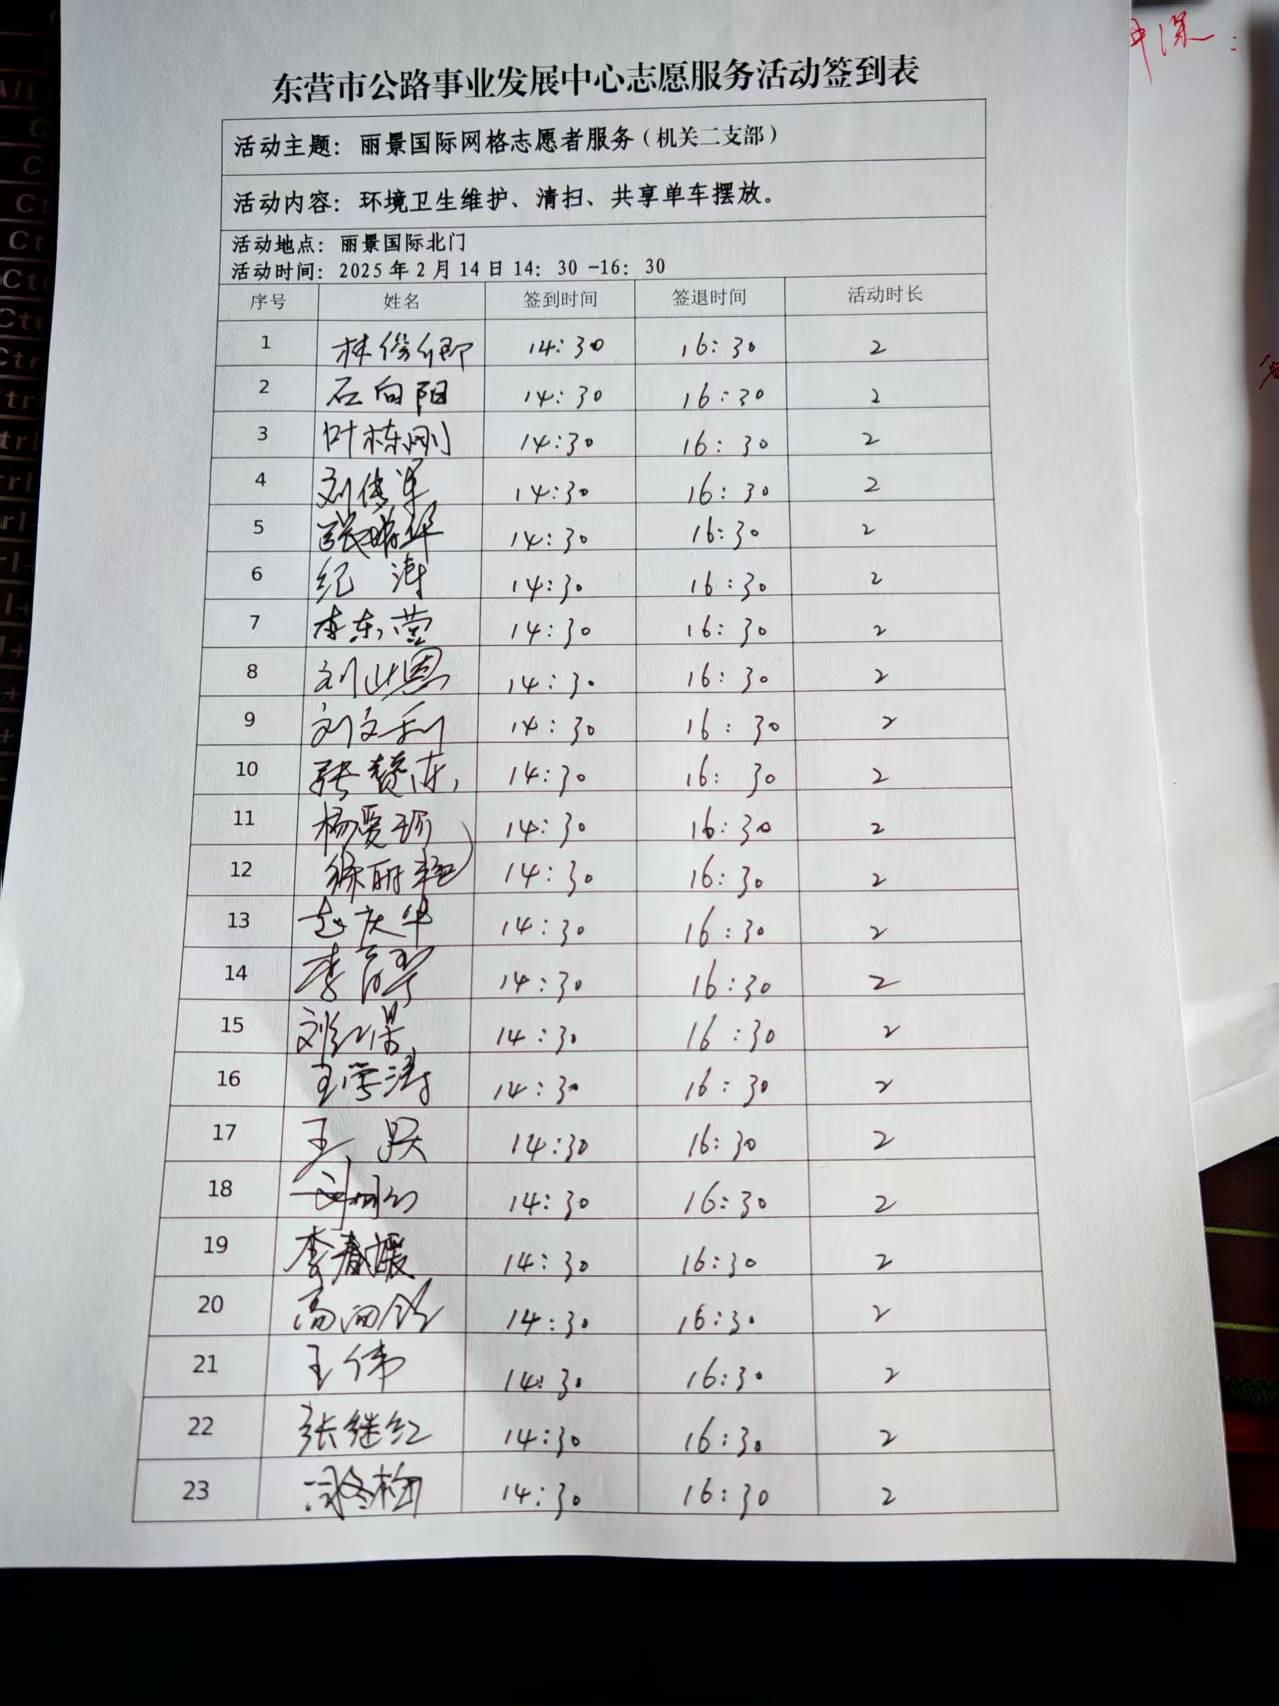 东营市公路事业发展中心志愿服务活动签到表
活动主题：丽景国际网格志愿者服务（机关二支部）
活动内容：环境卫生维护、清扫、共享单车摆放。
活动地点：丽景国际北门
活动时间：2025年2月14日14：30-16：30
序号 姓名 签到时间 签退时间 活动时长
1 林俊卿 14:30 16:30 2
2 石向阳 14:30 16:30 2
3 叶栋刚 14:30 16:30 2
4 刘传军 14:30 16:30 2
5 张晓华 14:30 16:30 2
6 纪涛 14:30 16:30 2
7 李东营 14:30 16:30 2
8 刘山恩 14:30 16:30 2
9 刘文利 14:30 16:30 2
10 张赞东 14:30 16:30 2
11 杨爱珍 14:30 16:30 2
12 徐丽艳 14:30 16:30 2
13 赵庆华 14:30 16:30 2
14 李 14:30 16:30 2
15 刘 14:30 16:30 2
16 王学涛 14:30 16:30 2
17 王昊 14:30 16:30 2
18 14:30 16:30 2
19 李春媛 14:30 16:30 2
20 高 14:30 16:30 2
21 王伟 14:30 16:30 2
22 张继红 14:30 16:30 2
23 冬梅 14:30 16:30 2